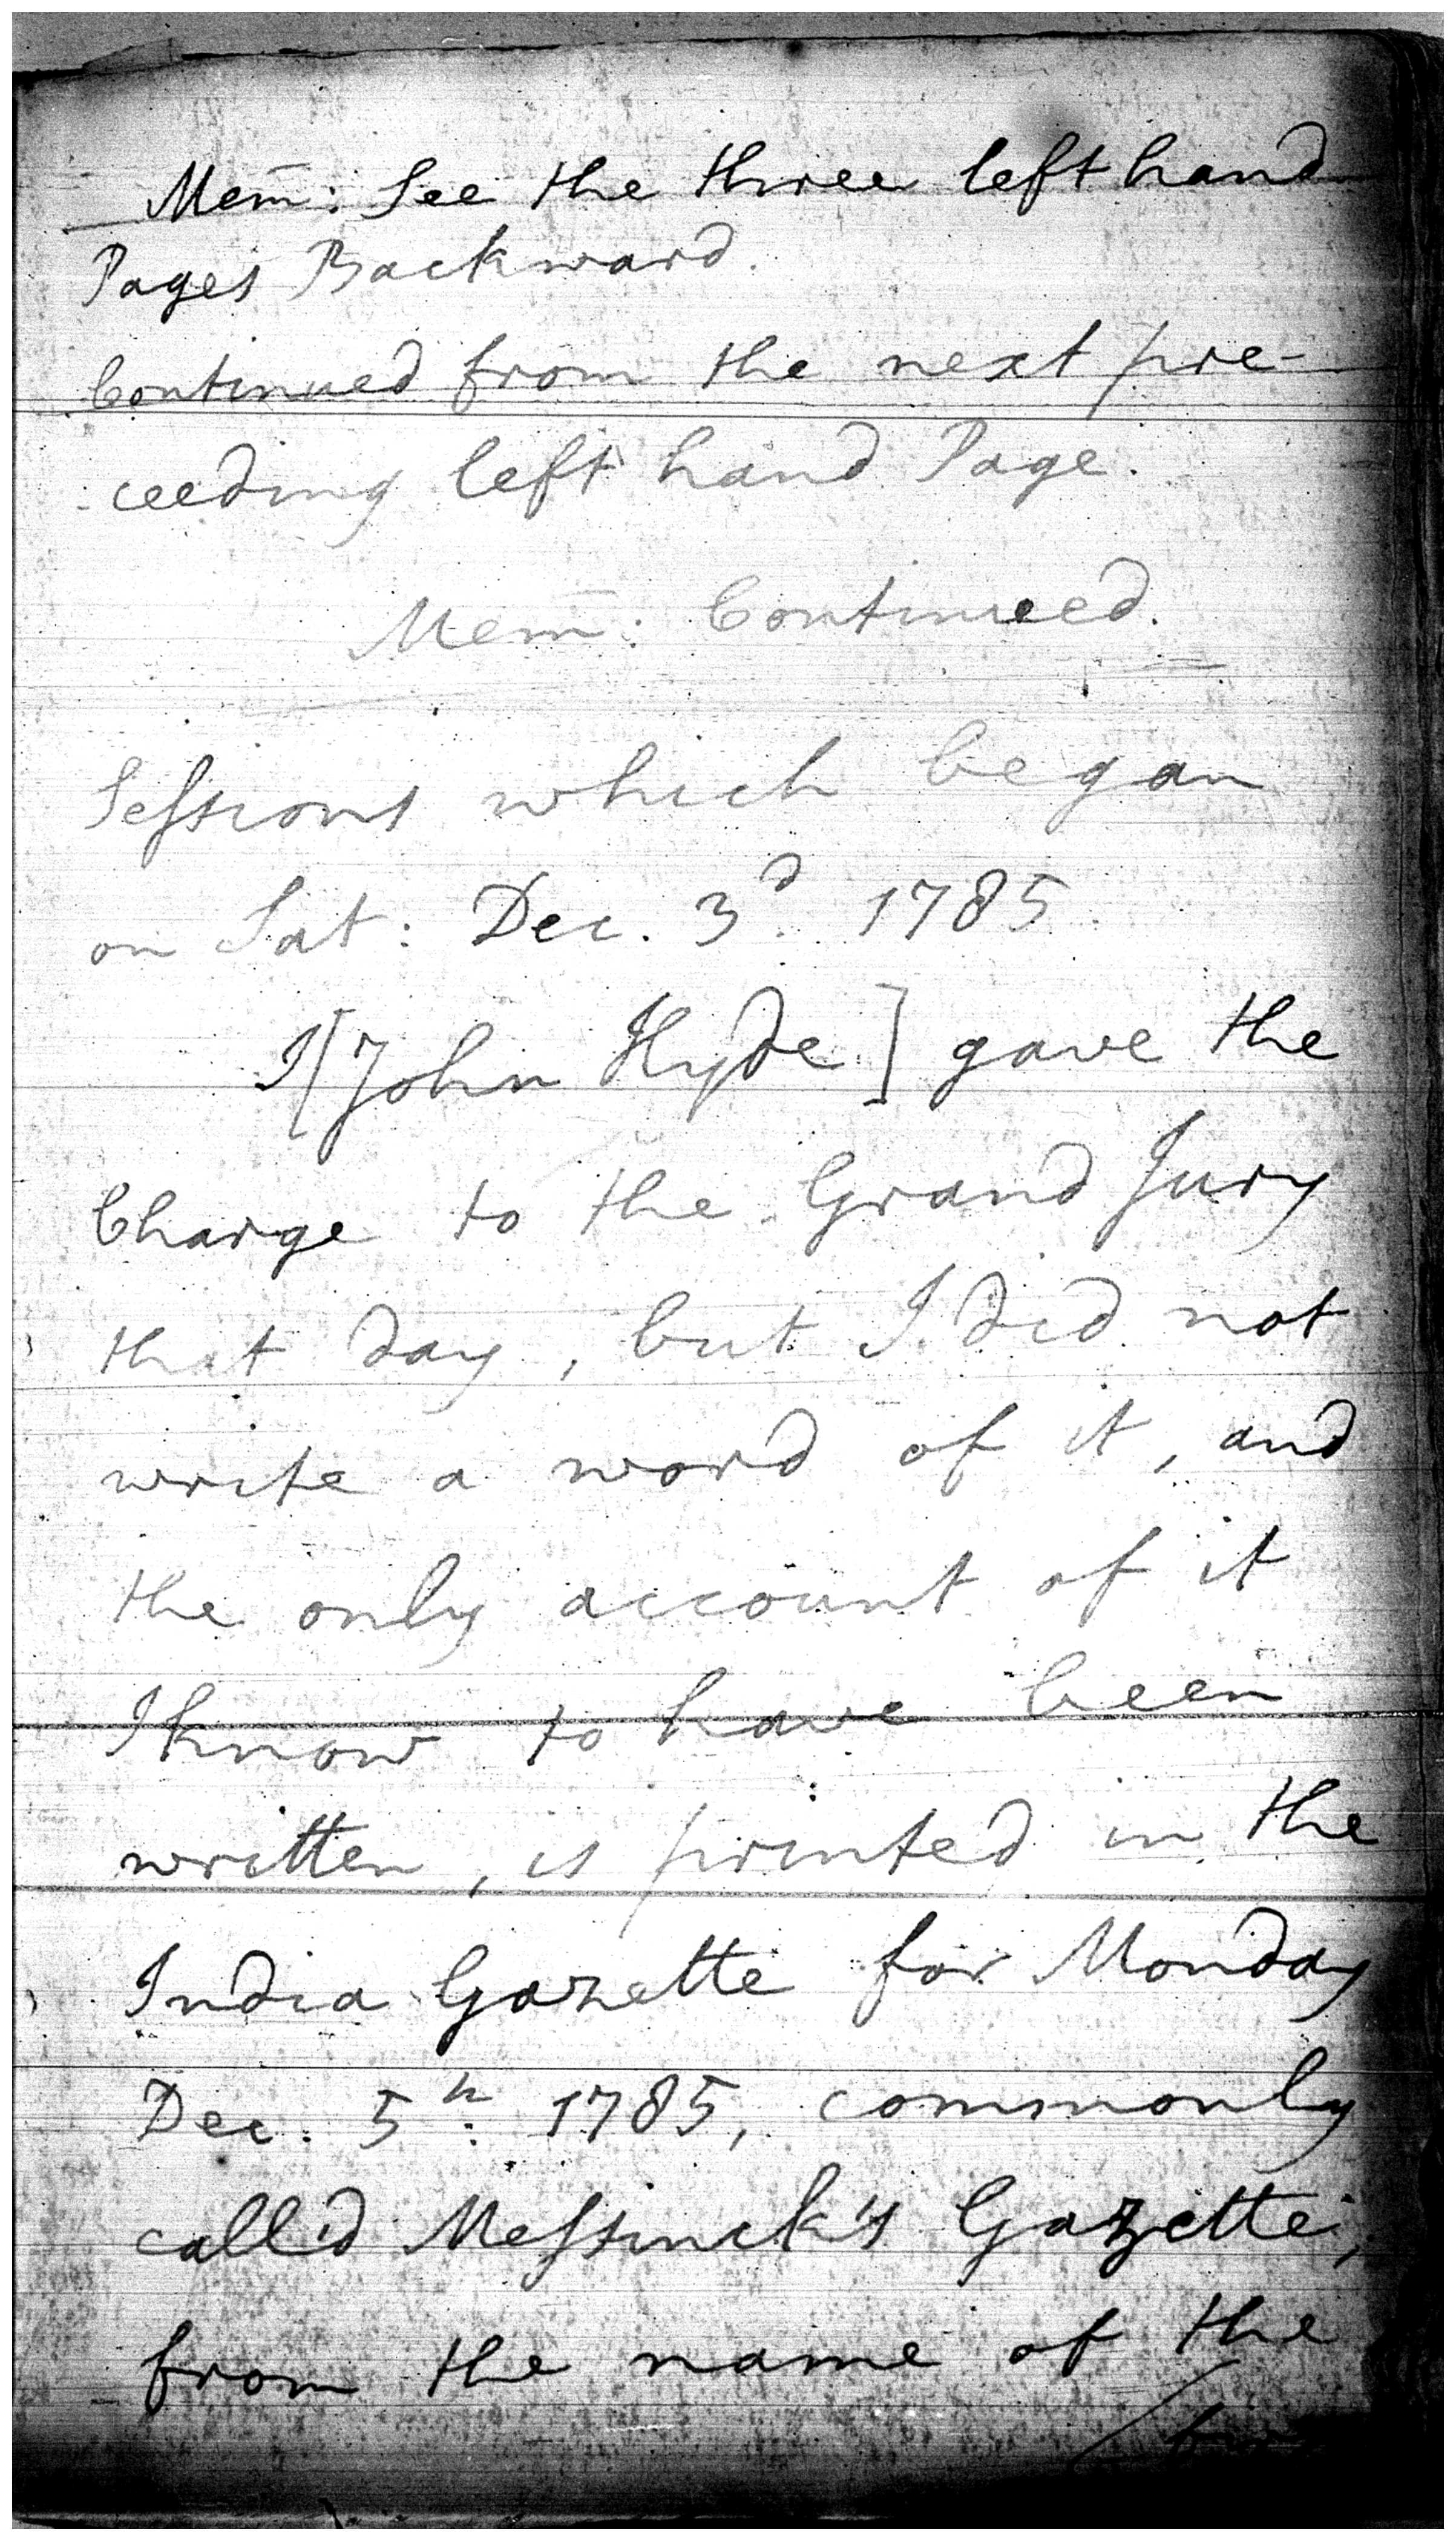 Mem̄: See the three left hand
Pages Backward.
Continued from the next pre-
ceeding left hand Page.
Mem̄: Continued.
Seſsions which began
on Sat: Dec. 3d. 1785.
I [John Hyde] gave the
Charge to the Grand Jury
that day, but I did not
write a word of it, and
the only account of it
I know to have been
written, is printed in the
India Gazette for Monday
Dec. 5th. 1785, commonly
call'd Meſsinck's Gazette,
from the name of the